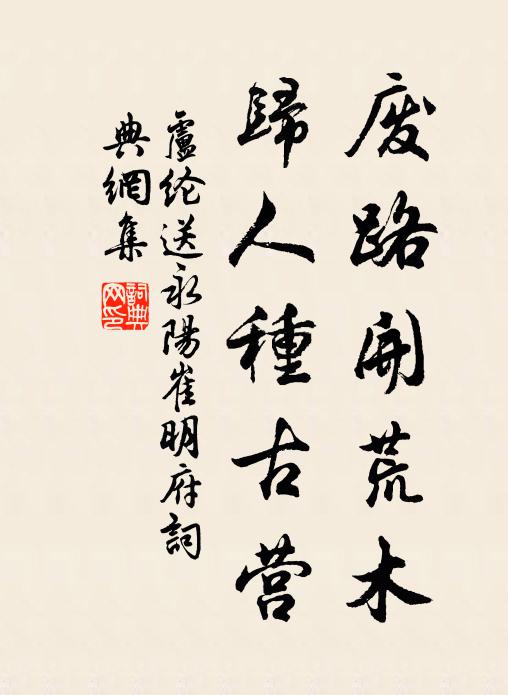 废路开荒木
歸人種古营
盧纶送永陽崔明府詞
典網集
詞典
网印